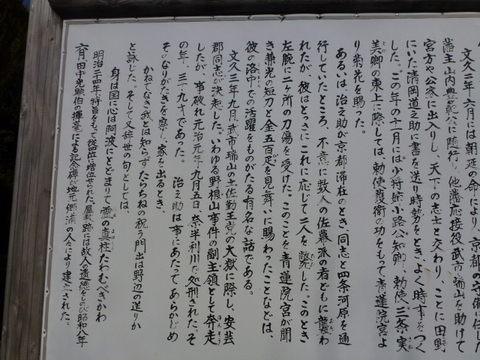 文久二年、六月には朝廷の命により、京都の守備に任じた
藩主山内豊範公に随行し、他藩応接役武市瑞山を助けて
宮方や公家に出入りし、天下の志士と交わり、ことに田野
にいた清岡道之助に書を送り時勢をとき、よく時事をつく
した。この年の十一月には少将姉小路公知卿、勅使三条実
美卿の東上に際しては、勅使護衛の功をもって、青蓮院宮よ
り菊花を賜った。
あるいは、治之助が京都滞在のとき、同志と四条河原を通
行していたところ、不意に数人の佐幕派の者どもに襲わ
れたが、彼はとっさにこれに応じて三人を談斃した。このとき
左腕に二ヶ所の刀傷を受けた。このことを青蓮院宮が聞
き兼光の短刀と金五百疋を見舞いに賜わったことなどは、
彼の洛中での活躍をものがたる有名な話である。
文久三年九月、武市瑞山の土佐勤王党の大獄に際し、安芸
郡同志が決起した、いわゆる野根山事件の副主領として奔走
したが、事破れ元治元年九月五日、奈半利川で処刑された。そ
の年、三十九才であった。治之助は事にあたってあらかじめ
そなわりがたきを察し、家を出るとき、
かねてなき我とは知らずたらちねの祝う門出は野辺の送りか
と詠じた。そして、辞世の句としては、
身は国に心は阿波にとどまりて雪の真柱たわむべきかわ
明治二十四年、特旨をもって従四位を増位せられた。屋敷跡には故人の遺徳をしのび昭和八年
六月田中光顕伯の揮毫による記念碑が地元、郷浦の人々により建立された。